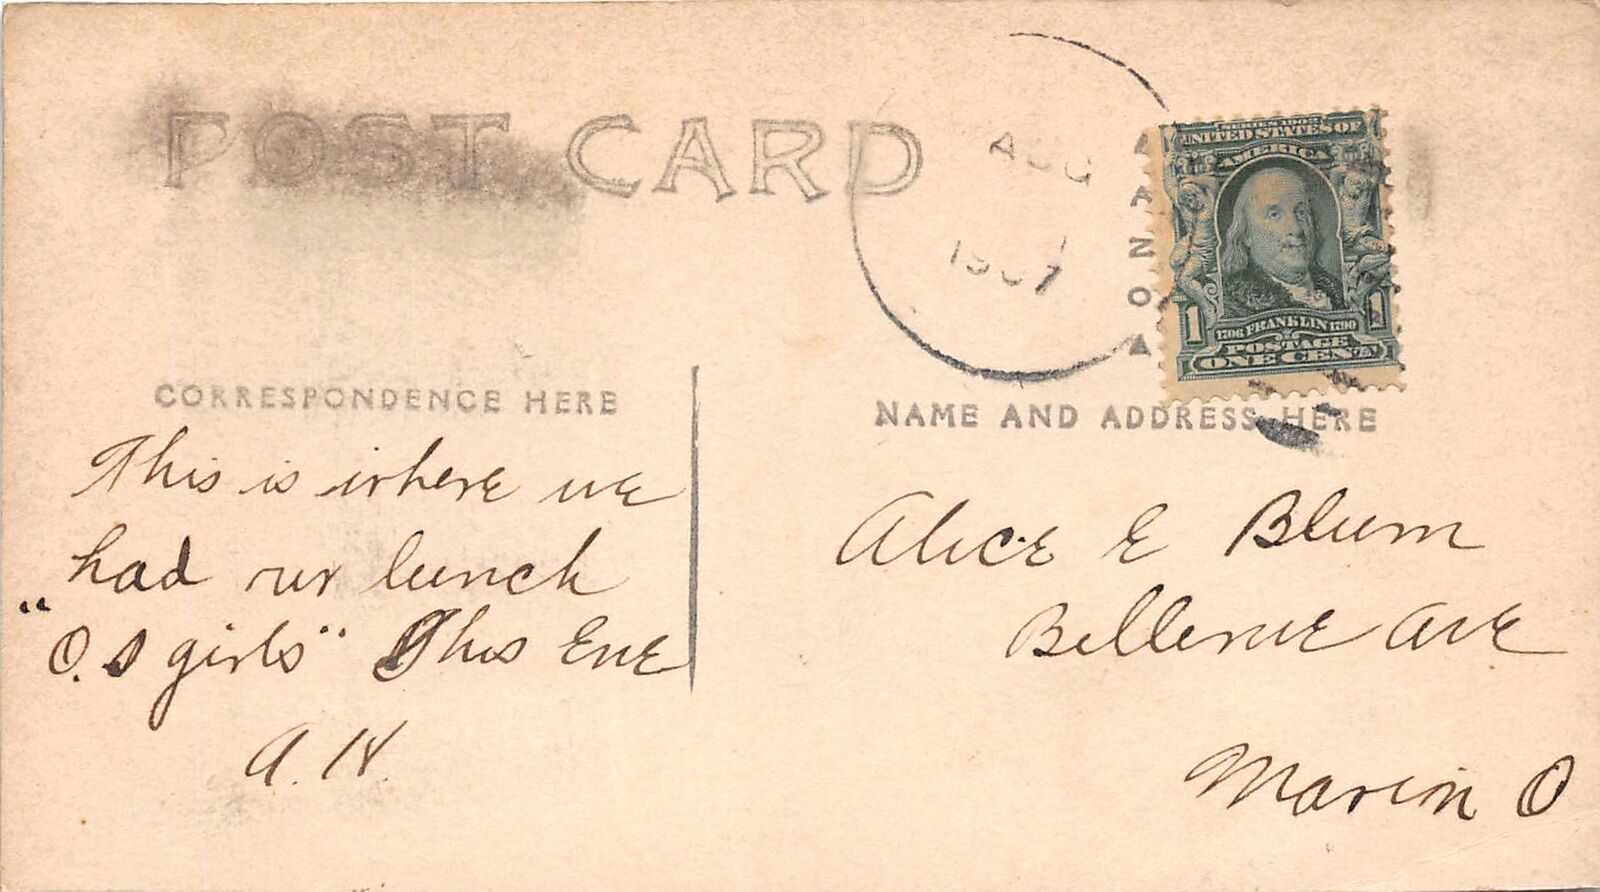 POST CARD
AUG
1
1907
SERIES 1902
UNITED STATES OF
AMERICA
1706 FRANKLIN 1790
POSTAGE
1 1
ONE CENT
CORRESPONDENCE HERE
This is where we
had our lunch
"O. S girls" This Eve
A. H.
NAME AND ADDRESS HERE
Alice E Blum
Bellevue Ave
Marion O